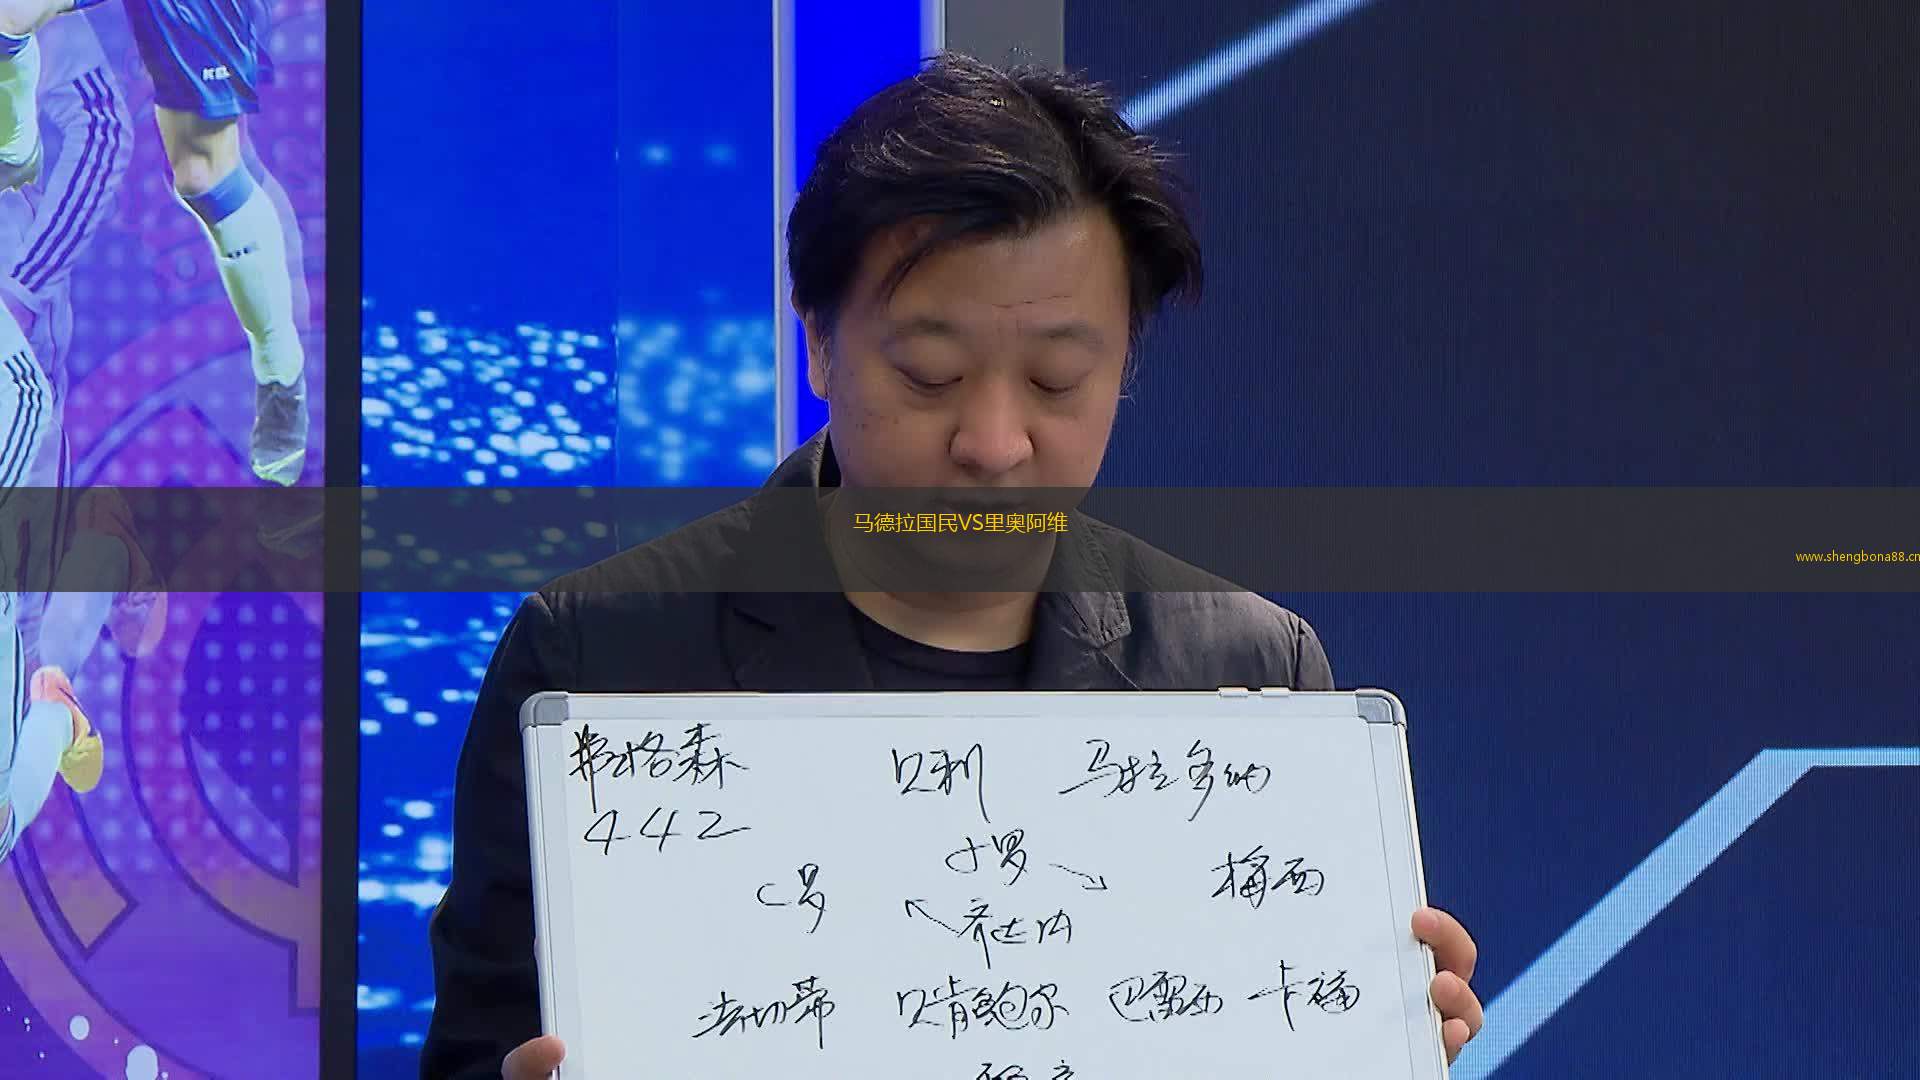 马德拉国民VS里奥阿维
www.shengbona88.cn
弗格森 贝利 马拉多纳
442
小罗
C罗 梅西
齐达内
法切蒂 贝肯鲍尔 巴雷西 卡福